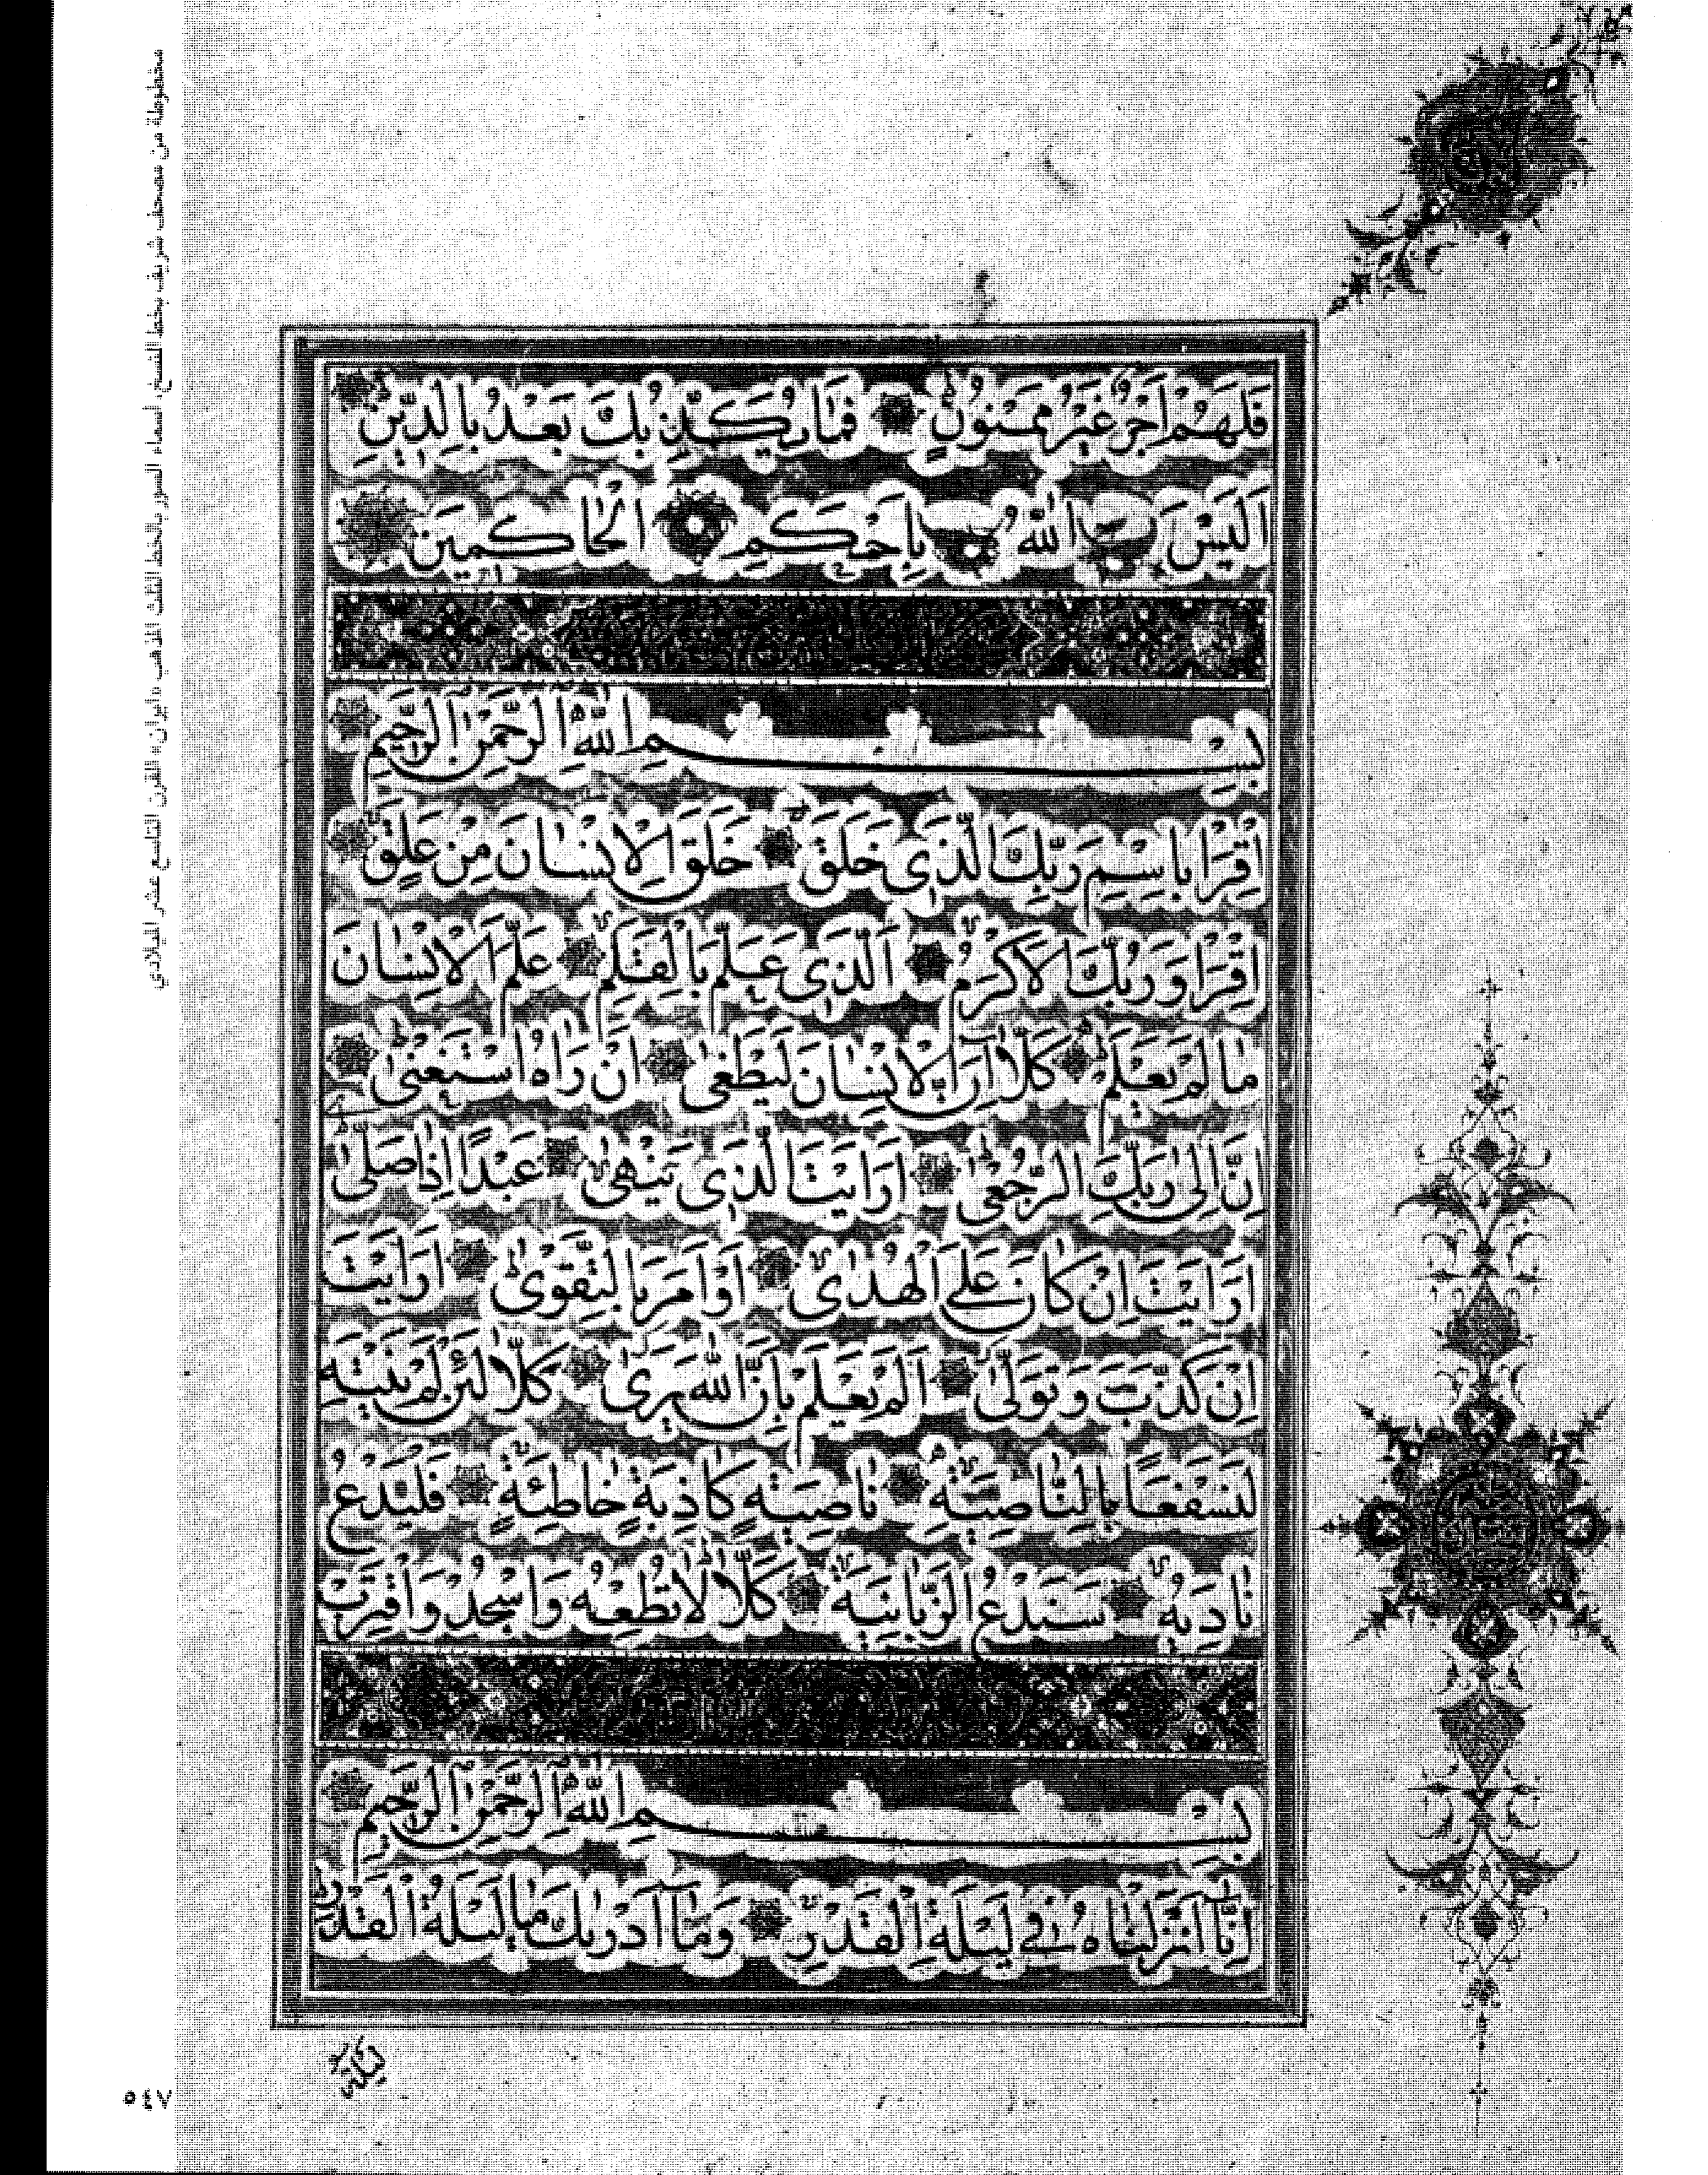 فَلَهُمْ اَجْرٌ غَيْرُ مَمْنُونٍ فَمَا يُكَذِّبُكَ بَعْدُ بِالدِّينِ
اَلَيْسَ اللّٰهُ بِاَحْكَمِ الْحَاكِمِينَ
بِسْمِ اللّٰهِ الرَّحْمٰنِ الرَّحِيمِ
اِقْرَاْ بِاسْمِ رَبِّكَ الَّذِى خَلَقَ خَلَقَ الْاِنْسَانَ مِنْ عَلَقٍ
اِقْرَاْ وَرَبُّكَ الْاَكْرَمُ اَلَّذِى عَلَّمَ بِالْقَلَمِ عَلَّمَ الْاِنْسَانَ
مَا لَمْ يَعْلَمْ كَلَّا اِنَّ الْاِنْسَانَ لَيَطْغٰى اَنْ رَاٰهُ اسْتَغْنٰى
اِنَّ اِلٰى رَبِّكَ الرُّجْعٰى اَرَاَيْتَ الَّذِى يَنْهٰى عَبْدًا اِذَا صَلّٰى
اَرَاَيْتَ اِنْ كَانَ عَلَى الْهُدٰى اَوْ اَمَرَ بِالتَّقْوٰى اَرَاَيْتَ
اِنْ كَذَّبَ وَتَوَلّٰى اَلَمْ يَعْلَمْ بِاَنَّ اللّٰهَ يَرٰى كَلَّا لَئِنْ لَمْ يَنْتَهِ
لَنَسْفَعًا بِالنَّاصِيَةِ نَاصِيَةٍ كَاذِبَةٍ خَاطِئَةٍ فَلْيَدْعُ
نَادِيَهُ سَنَدْعُ الزَّبَانِيَةَ كَلَّا لَا تُطِعْهُ وَاسْجُدْ وَاقْتَرِبْ
بِسْمِ اللّٰهِ الرَّحْمٰنِ الرَّحِيمِ
اِنَّا اَنْزَلْنَاهُ فِى لَيْلَةِ الْقَدْرِ وَمَا اَدْرٰيكَ مَا لَيْلَةُ الْقَدْرِ
لَيْلَةُ
مخطوطة من مصحف شريف بخط النسخ، أسماء السور بالخط الثلث المذهب «إيران» القرن التاسع عشر الميلادي
٥٤٧